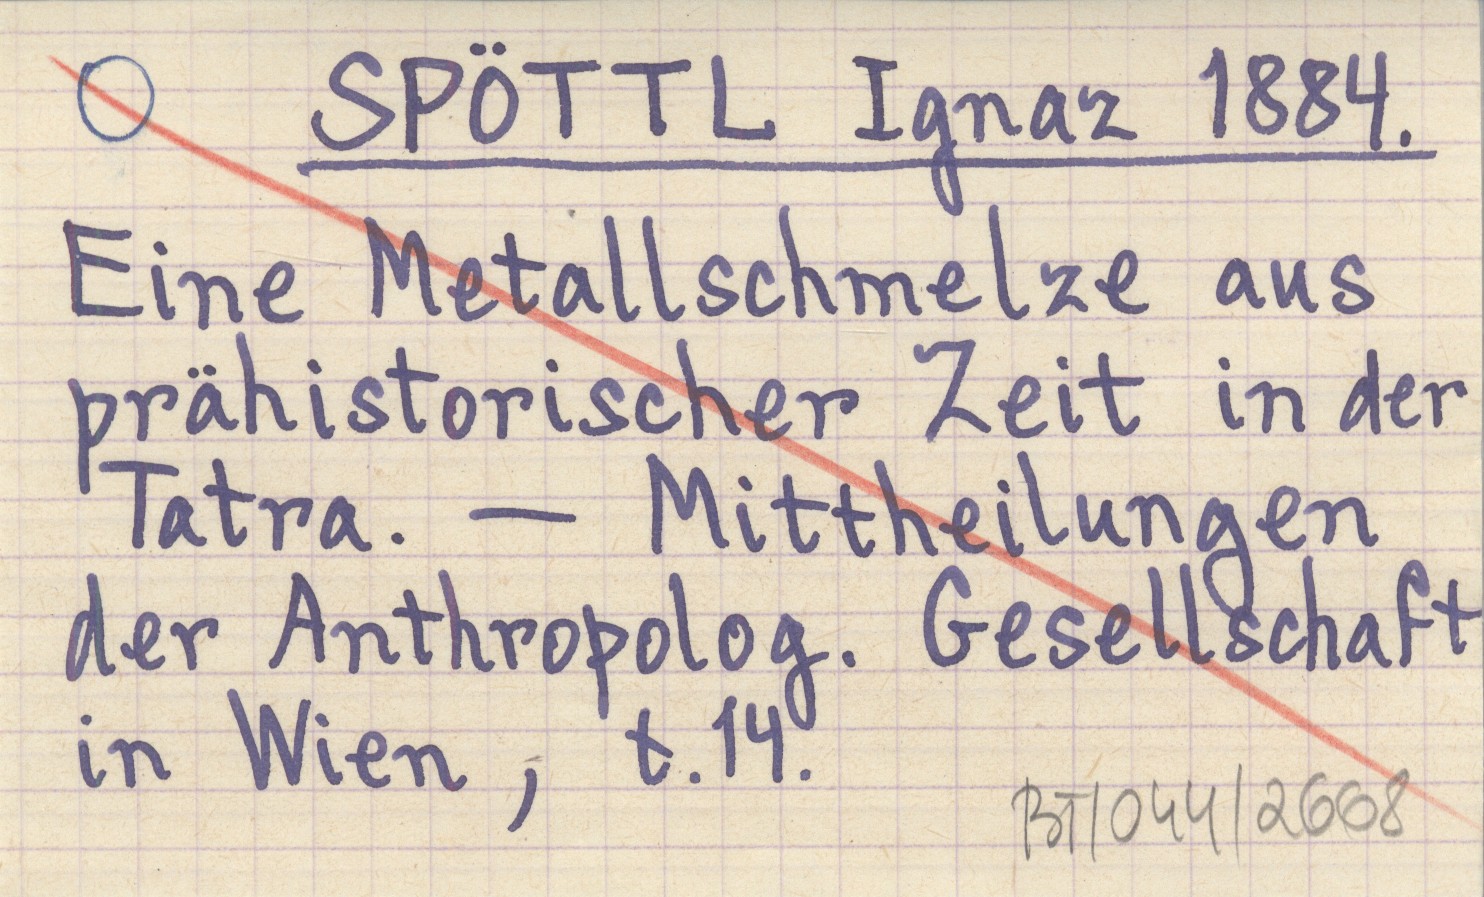 SPÖTTL Ignaz 1884.
Eine Metallschmelze aus
prähistorischer Zeit in der
Tatra. — Mittheilungen
der Anthropolog. Gesellschaft
in Wien, t.14.
BT/044/2668